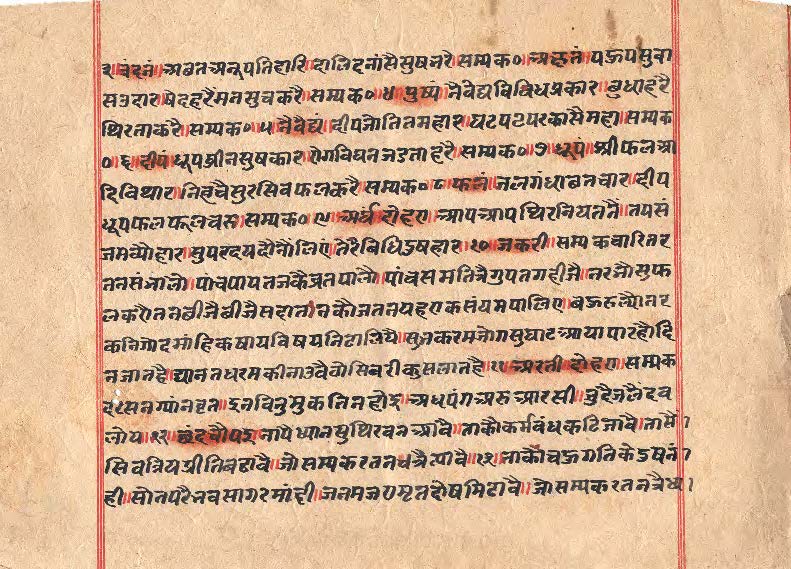 २॥चंदनं॥ अछत अनूप निहारि॥ दालिद नासै सुष भरै॥ सम्यक० ॥अछतं॥ पऊप सुवा
स उदार॥ षेद हरै मन सुच करै॥ सम्यक० ॥४॥ पुष्पं॥ नैवेद्य विविध प्रकार॥ छुधा हरै
थिरता करै॥ सम्यक० ॥५॥ नैवेद्यं॥ दीप जोति तम हार॥ घट पट परकासै महा॥ सम्यक
०॥६॥दीपं॥ धूप घ्रान सुषकार॥ रोग विघन जडता हरै॥ सम्यक० ॥७॥ धूपं॥ श्रीफल आ
दि विथार॥ निहचै सुर सिव फल करै॥ सम्यक० ॥८॥ फलं॥ जल गंधाछत चार॥ दीप
धूप फल फूल चरू॥ सम्यक० ॥९॥ अर्घं॥ दोहरा॥ आप आप थिर नियत नै॥ तप सं
जम व्यौहार॥ सुपर दया दोनौं लिए॥ तेरै विधि दुषहार॥१०॥ जकरी॥ सम्यक चारित र
तन संभालो॥ पांच पाप तजकै व्रत पालो॥ पंच समति त्रै गुपत गहीजै॥ नरभौ सुफ
ल करौ तन छीजै॥ छीजै सदा तन कौ जतन यह एक संयम पालिए॥ बऊ रूल्यो नर
क निगोद मांहि कषाय विषयनि टालियै॥ सुभ करम जोग सुघाट आया पार हो दि
न जात है॥ द्यानत धरम की नाउ बैठो सिवपुरी कुसलात है॥११॥ आरती॥ दोहरा॥ सम्यक
दरसन ग्यांन वृत॥ इन विनु मुकति न होइ॥ अंध पंग अरु आरसी॥ जुदै जलै दव
लोय॥१२॥ छंद चौपइ॥ जापै ध्यान सुथिर बन आवै॥ ताकौ कर्मबंध कटि जावै॥ तासैं।
सिवत्रिय प्रीति बढावै॥ जो सम्यक रतनत्रै ध्यावै॥१३॥ ताकौं चऊगति के दुष नां।
ही॥ सो न परै भवसागर मांही॥ जनम जरा मृत दोष मिटावै॥ जो सम्यक रतनत्रै ध्या।